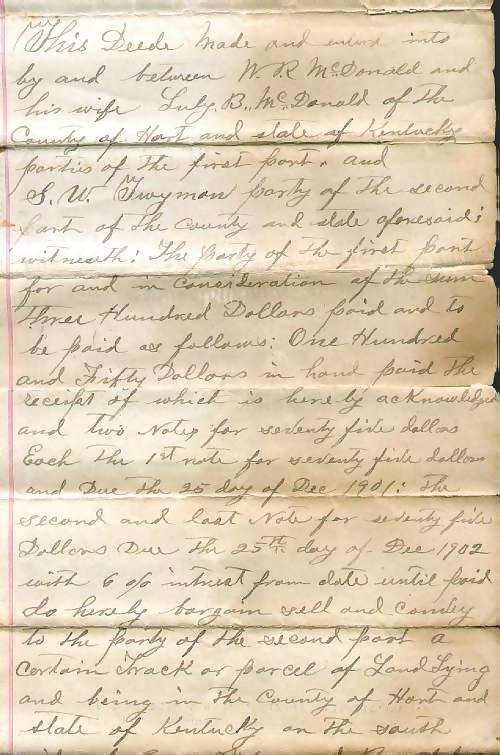 This Deede Made and enterd into
by and between W. R. McDonald and
his wife Luly. B. McDonald of the
County of Hart and state of Kentucky
parties of the first part. and
S. W. Twyman party of the second
part of the county and state aforesaid:
witneseth: The party of the first part
for and in consideration of the sum
three Hundred Dollars paid and to
be paid as follows: One Hundred
and Fifty Dollars in hand paid the
receipt of which is hereby acknowledged
and two Notes for seventy five dollars
Each the 1st note for seventy five dollars
and Due the 25 day of Dec 1901: the
second and last Note for seventy five
Dollars Due the 25th day of Dec 1902
with 6 % intrust from date until paid
do hereby bargain sell and convey
to the party of the second part a
certain track or parcel of Land Lying
and being in the County of Hart and
state of Kentucky on the south